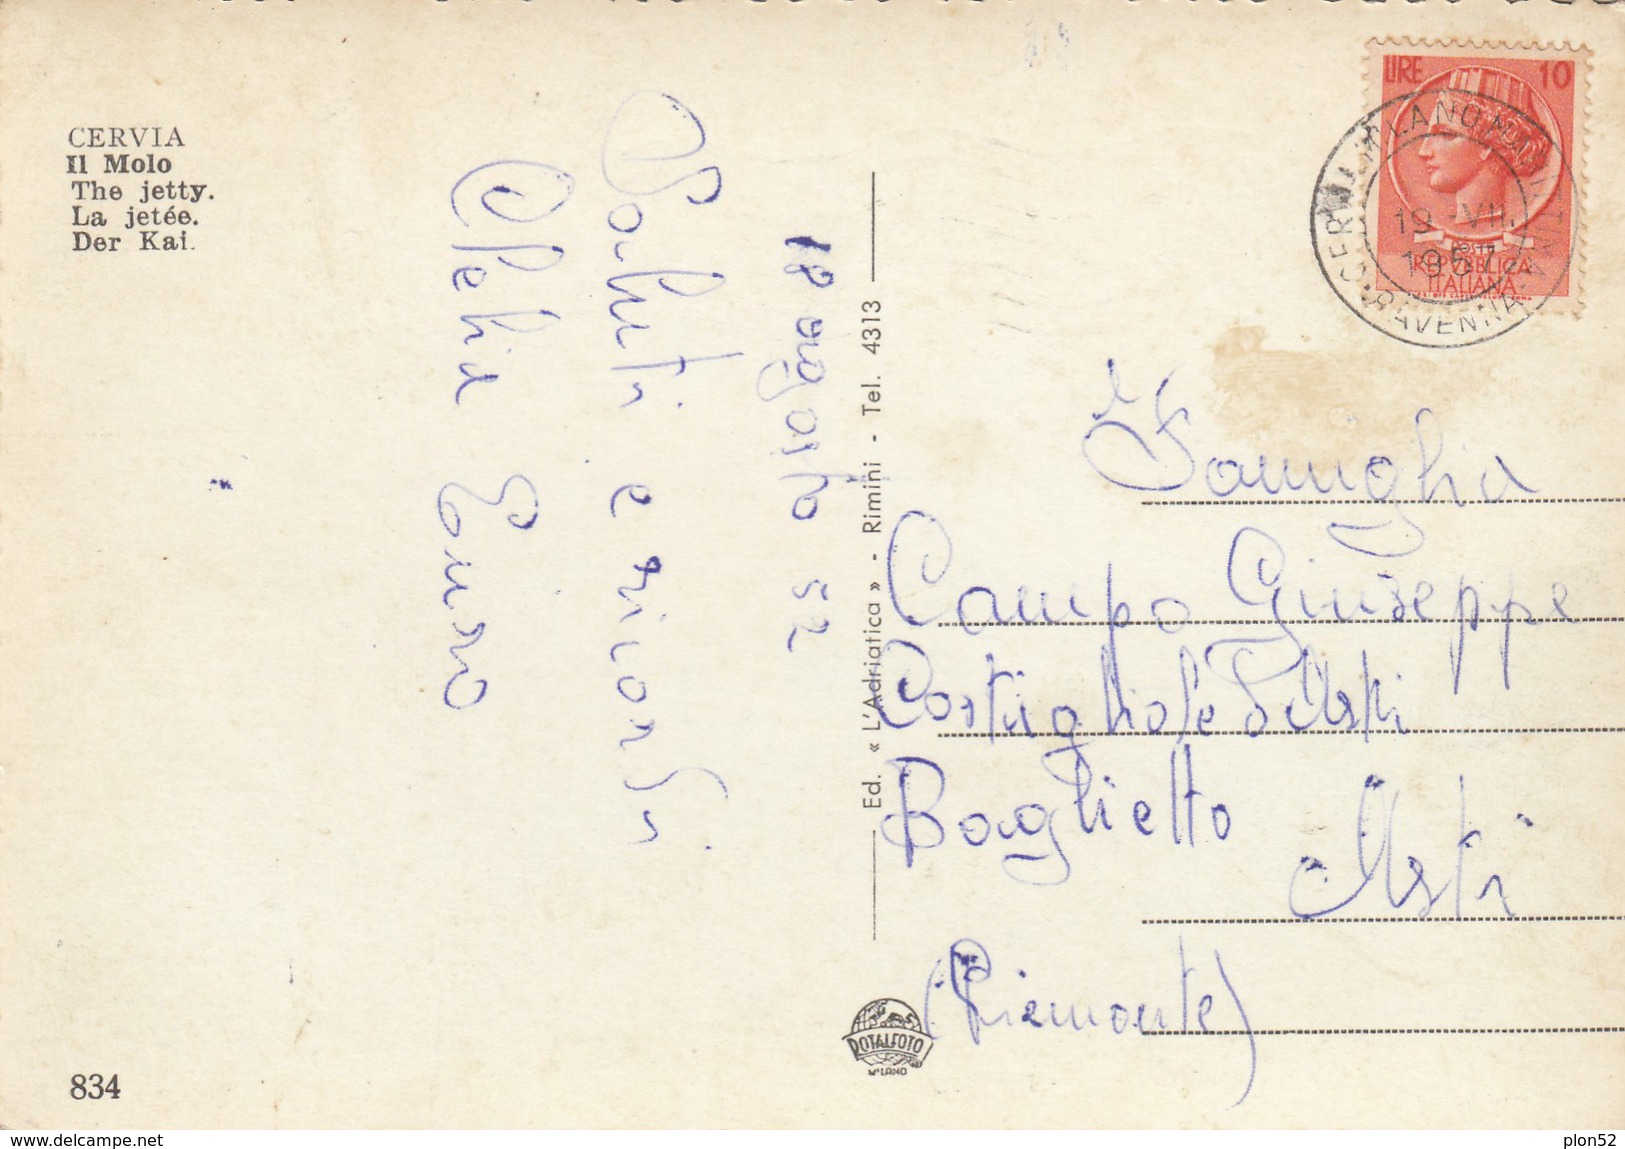 CERVIA
Il Molo
The jetty.
La jetée.
Der Kai.
18 Agosto 52
Saluti e ricordi
Clelia Enzo
Ed. « L'Adriatica » - Rimini - Tel. 4313
LIRE 10
POSTE
REPVBBLICA
ITALIANA
CERVIA MILANO MARITTIMA
19 - VII.
1957
RAVENNA
Famiglia
Campo Giuseppe
Costigliole d'Asti
Boglietto
Asti
(Piemonte)
ROTALFOTO
MILANO
834
www.delcampe.net
plon52